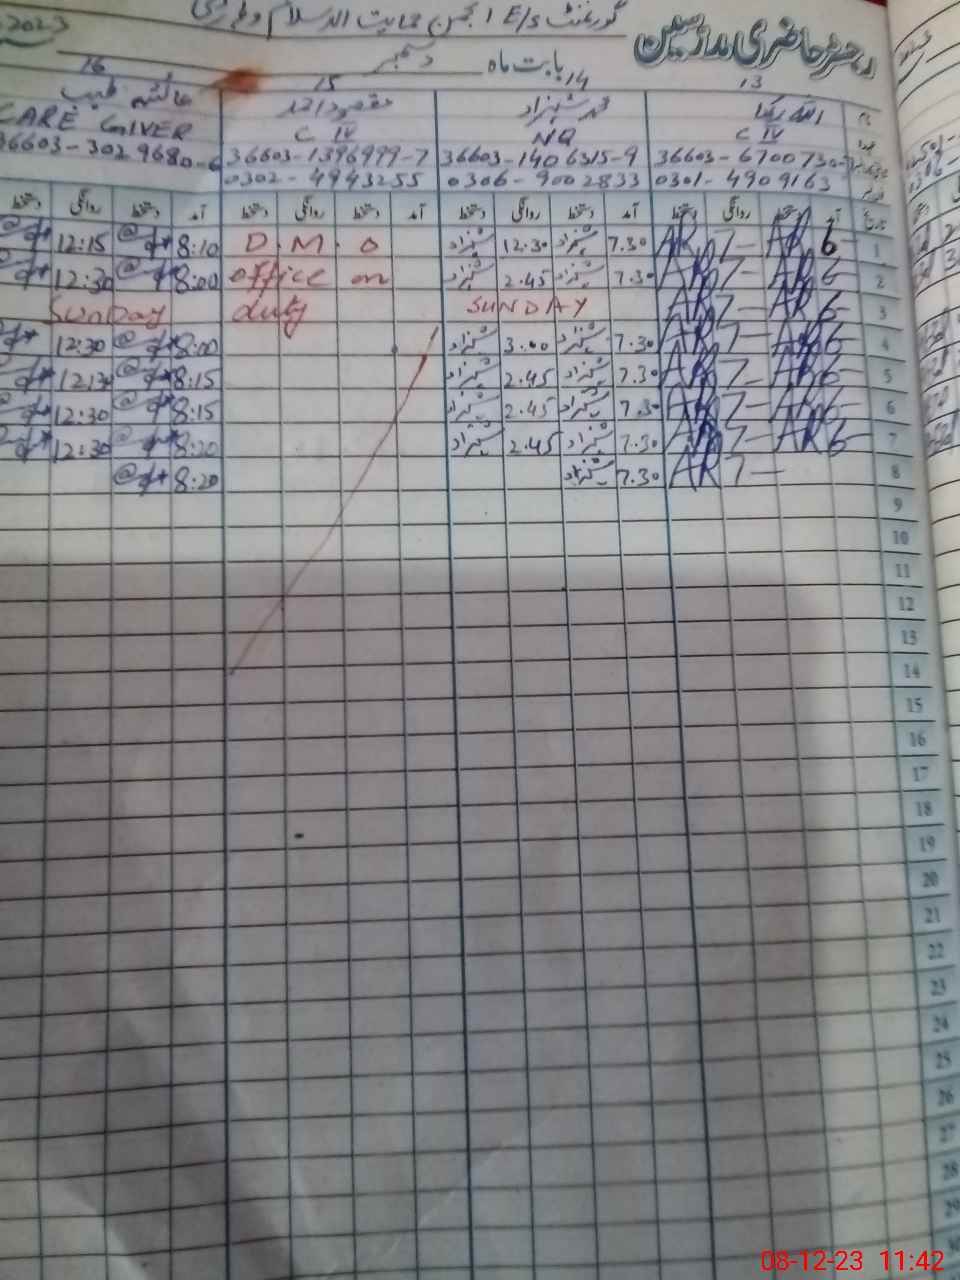 گورنمنٹ E/S انجمن حمایت الاسلام وہاڑی
رجسٹر حاضری مدرسین
2023 دسمبر بابت ماہ
13 14 15 16
نام اللہ رکھا محمد شہزاد مقصود احمد عائشہ طیب
عہدہ C IV NQ C IV CARE GIVER
36603-1406315-9 36603-1396999-7
0301-4909163 0306-9002833 0302-4943255
تاریخ آمد دستخط روانگی دستخط آمد دستخط روانگی دستخط آمد دستخط روانگی دستخط آمد دستخط روانگی دستخط
1 6 AR 7 AR 7.30 شہزاد 12.30 شہزاد D.M.O 8:10 12:15
2 6 AR 7 AR 7.30 شہزاد 2.45 شہزاد office on 8:00 12:30
3 6 AR 7 AR SUNDAY duty Sunday
4 6 AR 7 AR 7.30 شہزاد 3.00 شہزاد 8:00 12:30
5 6 AR 7 AR 7.30 شہزاد 2.45 شہزاد 8:15
6 6 AR 7 AR 7.30 شہزاد 2.45 شہزاد 8:15 12:30
7 6 AR 7 AR 7.30 شہزاد 2.45 شہزاد 8:20 12:30
8 7 AR 7.30 شہزاد 8:20
9
10
11
12
13
14
15
16
17
18
19
20
21
22
23
24
25
26
27
28
29
30
08-12-23 11:42